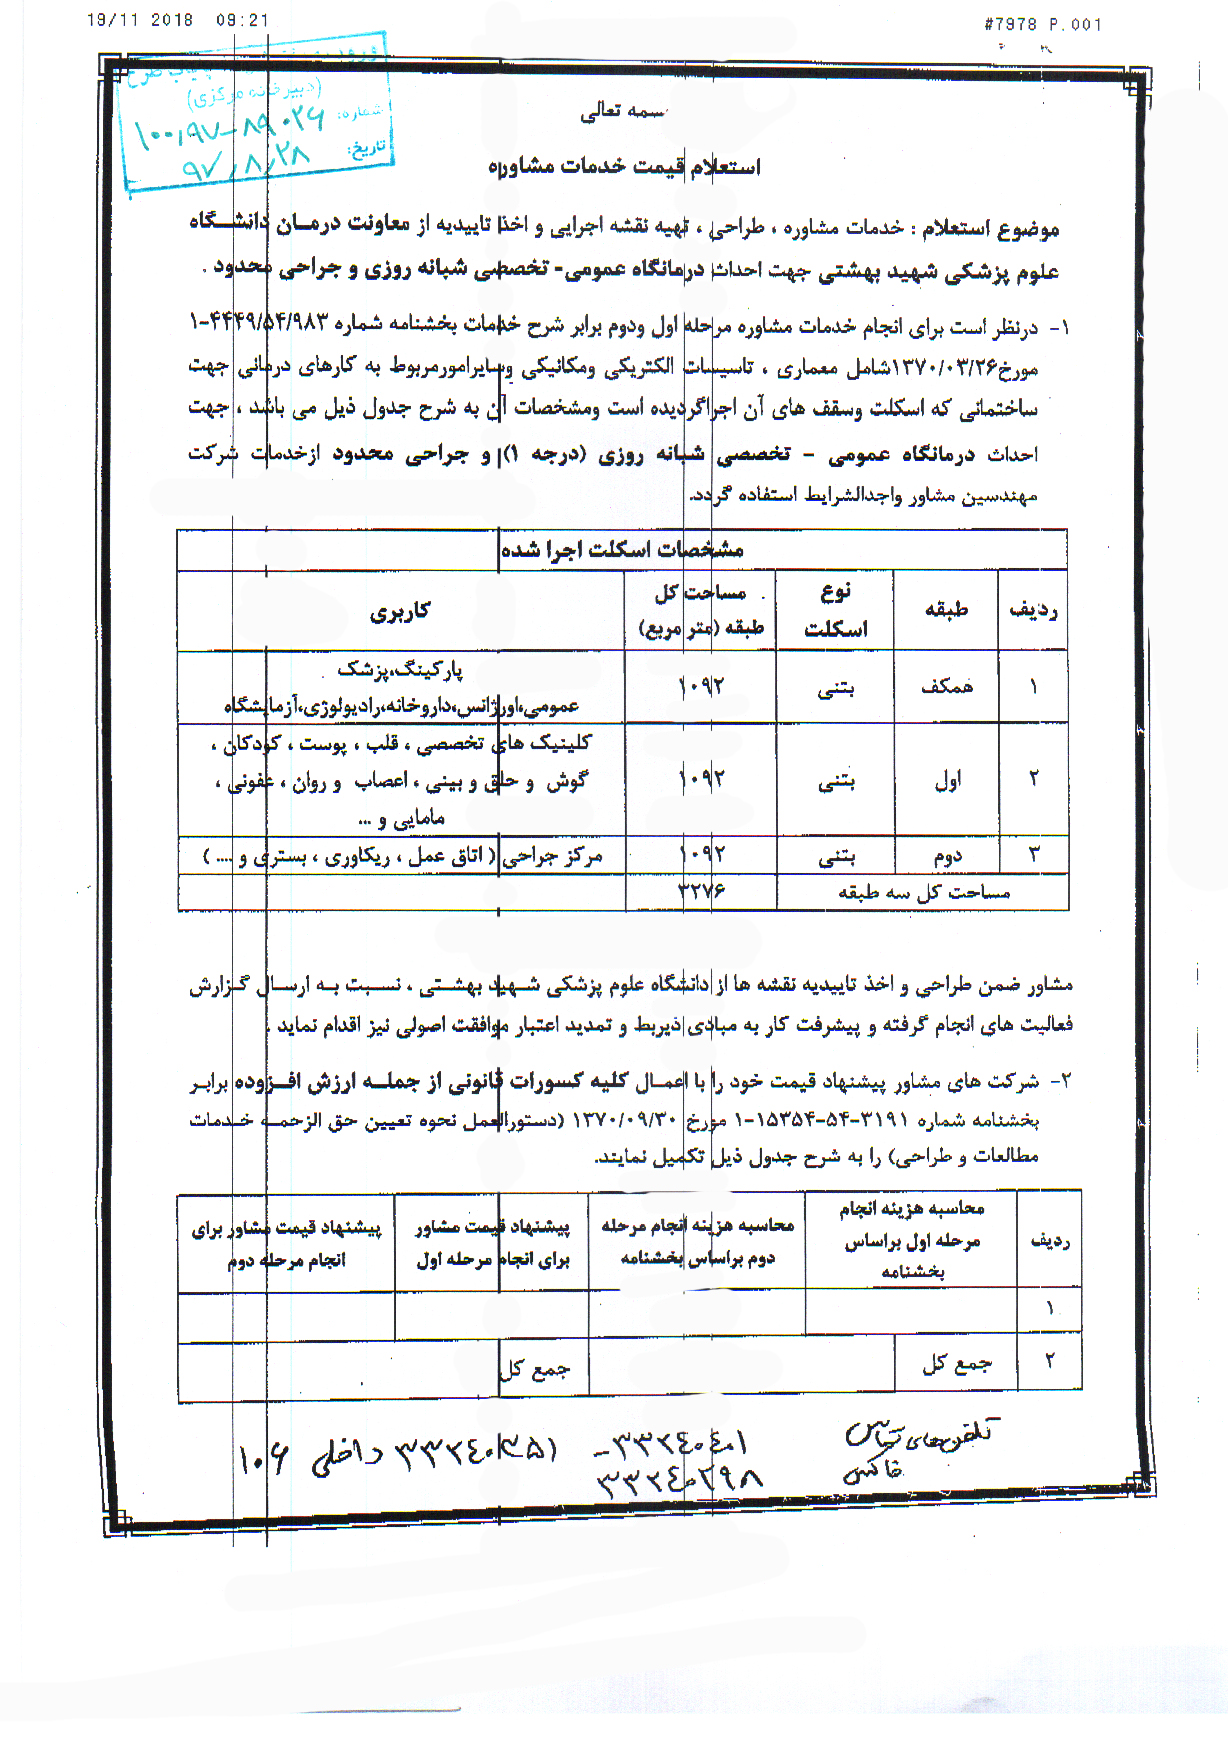 19/11 2018 09:21
#7978 P.001
(دبیرخانه مرکزی)
شماره: ۱۰۰،۹۷-۸۹۰۲۶
تاریخ: ۹۷،۸،۲۸
بسمه تعالی
استعلام قیمت خدمات مشاوره
موضوع استعلام : خدمات مشاوره ، طراحی ، تهیه نقشه اجرایی و اخذ تاییدیه از معاونت درمان دانشگاه
علوم پزشکی شهید بهشتی جهت احداث درمانگاه عمومی- تخصصی شبانه روزی و جراحی محدود .
۱- درنظر است برای انجام خدمات مشاوره مرحله اول ودوم برابر شرح خدمات بخشنامه شماره ۱-۴۴۴۹/۵۴/۹۸۳
مورخ۱۳۷۰/۰۳/۲۶شامل معماری ، تاسیسات الکتریکی ومکانیکی وسایرامورمربوط به کارهای درمانی جهت
ساختمانی که اسکلت وسقف های آن اجراگردیده است ومشخصات آن به شرح جدول ذیل می باشد ، جهت
احداث درمانگاه عمومی - تخصصی شبانه روزی (درجه ۱) و جراحی محدود ازخدمات شرکت
مهندسین مشاور واجدالشرایط استفاده گردد.
مشخصات اسکلت اجرا شده
ردیف طبقه نوع اسکلت مساحت کل طبقه (متر مربع) کاربری
۱ همکف بتنی ۱۰۹۲ پارکینگ،پزشک
عمومی،اورژانس،داروخانه،رادیولوژی،آزمایشگاه
۲ اول بتنی ۱۰۹۲ کلینیک های تخصصی ، قلب ، پوست ، کودکان ،
گوش و حلق و بینی ، اعصاب و روان ، عفونی ،
مامایی و ...
۳ دوم بتنی ۱۰۹۲ مرکز جراحی ( اتاق عمل ، ریکاوری ، بستری و .... )
مساحت کل سه طبقه ۳۲۷۶
مشاور ضمن طراحی و اخذ تاییدیه نقشه ها از دانشگاه علوم پزشکی شهید بهشتی ، نسبت به ارسال گزارش
فعالیت های انجام گرفته و پیشرفت کار به مبادی ذیربط و تمدید اعتبار موافقت اصولی نیز اقدام نماید .
۲- شرکت های مشاور پیشنهاد قیمت خود را با اعمال کلیه کسورات قانونی از جمله ارزش افزوده برابر
بخشنامه شماره ۱-۱۵۳۵۴-۵۴-۳۱۹۱ مورخ ۱۳۷۰/۰۹/۳۰ (دستورالعمل نحوه تعیین حق الزحمه خدمات
مطالعات و طراحی) را به شرح جدول ذیل تکمیل نمایند.
ردیف محاسبه هزینه انجام مرحله اول براساس بخشنامه محاسبه هزینه انجام مرحله دوم براساس بخشنامه پیشنهاد قیمت مشاور برای انجام مرحله اول پیشنهاد قیمت مشاور برای انجام مرحله دوم
۱
۲ جمع کل جمع کل
تلفن های تماس ۳۳۲۴۰۴۰۱- ۳۳۲۴۰۳۵۱ داخلی ۱۰۶
فاکس ۳۳۲۴۰۲۹۸